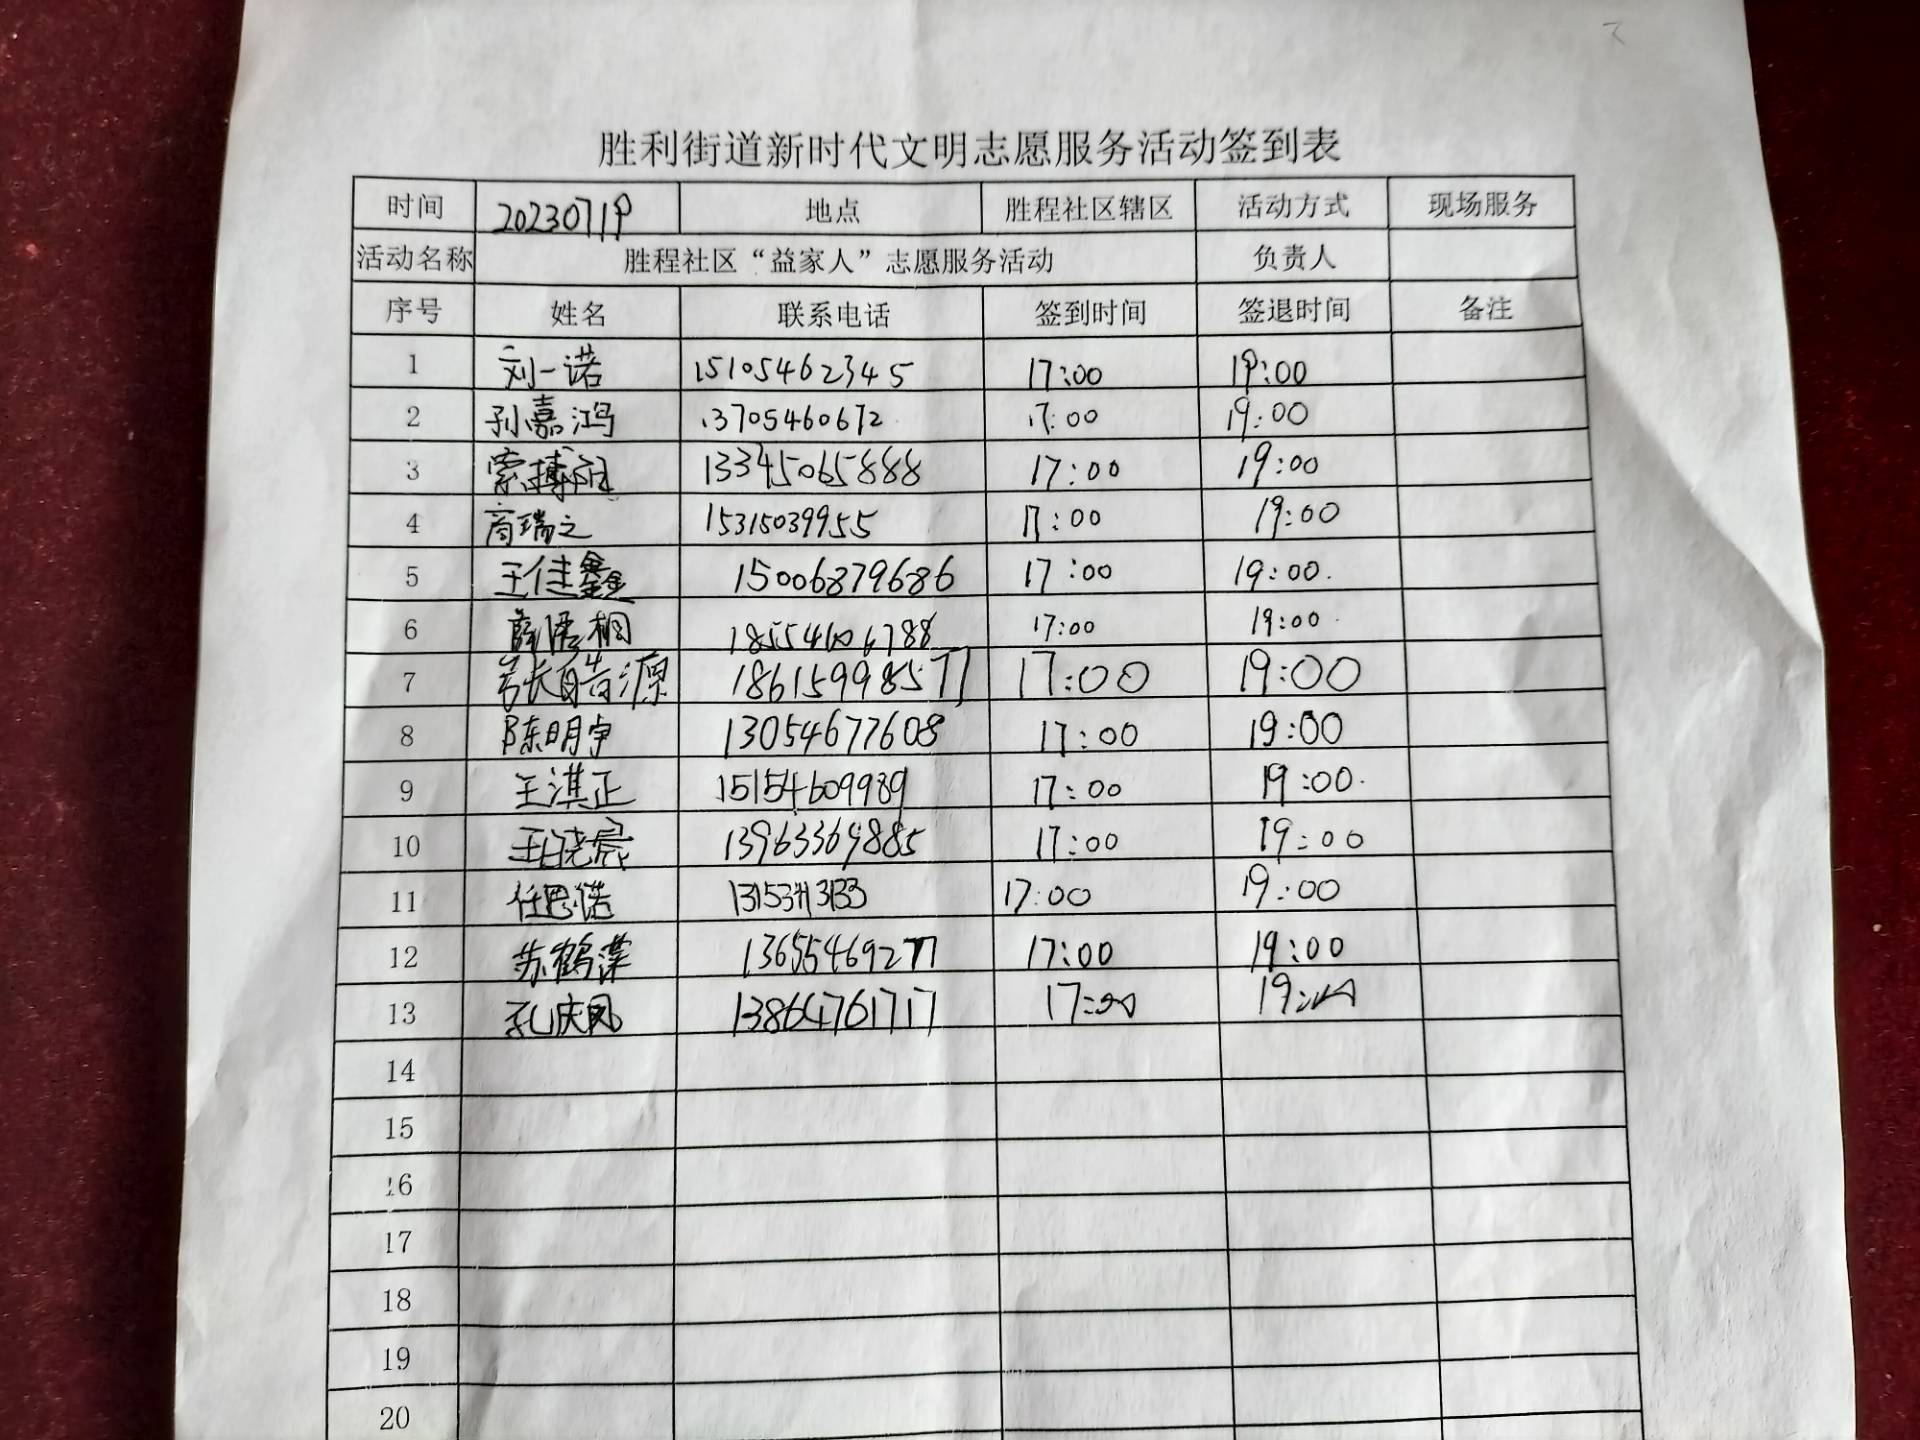 胜利街道新时代文明志愿服务活动签到表
时间 20230719 地点 胜程社区辖区 活动方式 现场服务
活动名称 胜程社区“益家人”志愿服务活动 负责人
序号 姓名 联系电话 签到时间 签退时间 备注
1 刘一诺 15105462345 17:00 19:00
2 孙嘉鸿 13705460672 17:00 19:00
3 索搏 13345065888 17:00 19:00
4 商瑞之 15315039955 17:00 19:00
5 王佳鑫 15006879686 17:00 19:00.
6 薛梧桐 18554106788 17:00 19:00
7 18615998577 17:00 19:00
8 陈明宇 13054677608 17:00 19:00
9 王淇正 15154609989 17:00 19:00.
10 王晓宸 13963369885 17:00 19:00
11 任思诺 17:00 19:00
12 苏鹤 13655469277 17:00 19:00
13 孔庆凤 13864761717 17:00 19:00
14
15
16
17
18
19
20